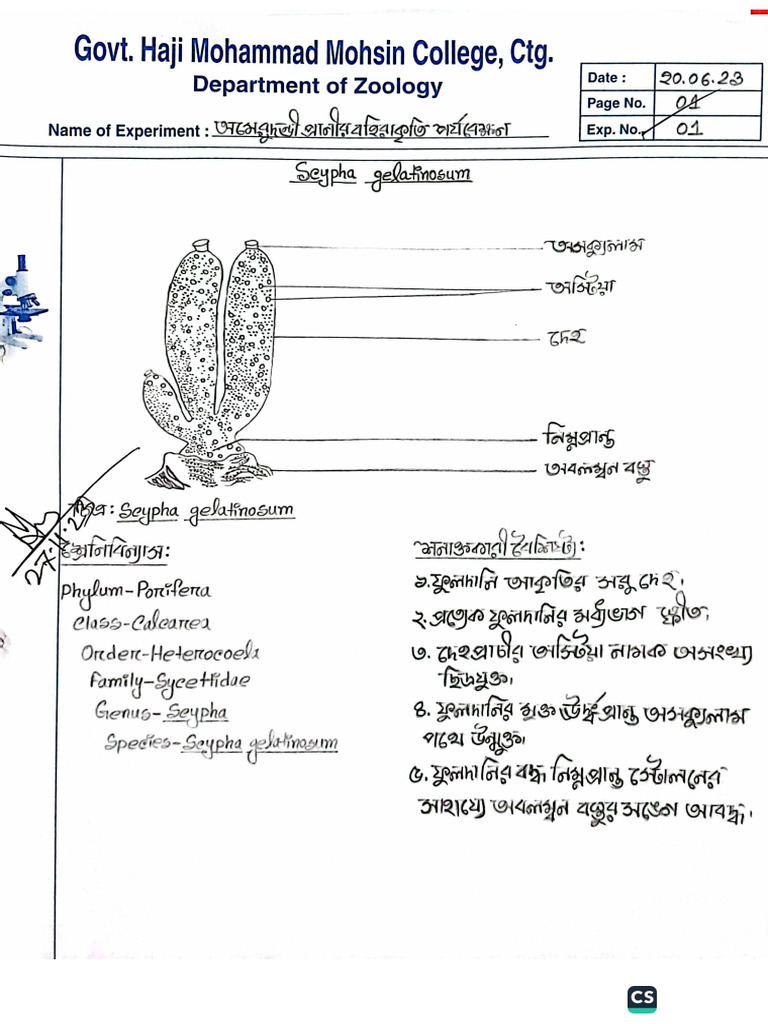 Govt. Haji Mohammad Mohsin College, Ctg.
Department of Zoology
Date : 20.06.23
Page No. 01
Name of Experiment : অমেরুদন্ডী প্রানীর বহিরাকৃতি পর্যবেক্ষন
Exp. No. 01
Scypha gelatinosum
অসক্যুলাম
অস্টিয়া
দেহ
নিম্নপ্রান্ত
অবলম্বন বস্তু
চিত্র: Scypha gelatinosum
27.11.23
শ্রেনিবিন্যাস:
Phylum-Porifera
Class-Calcarea
Order-Heterocoela
Family-Sycettidae
Genus-Scypha
Species-Scypha gelatinosum
শনাক্তকারী বৈশিষ্ট্য:
১. ফুলদানি আকৃতির সরু দেহ।
২. প্রত্যেক ফুলদানির মধ্যভাগ স্ফীত।
৩. দেহপ্রাচীর অস্টিয়া নামক অসংখ্য
ছিদ্রযুক্ত।
৪. ফুলদানির মুক্ত ঊর্ধ্বপ্রান্ত অসক্যুলাম
পথে উন্মুক্ত।
৫. ফুলদানির বদ্ধ নিম্নপ্রান্ত স্টোলনের
সাহায্যে অবলম্বন বস্তুর সঙ্গে আবদ্ধ।
CS